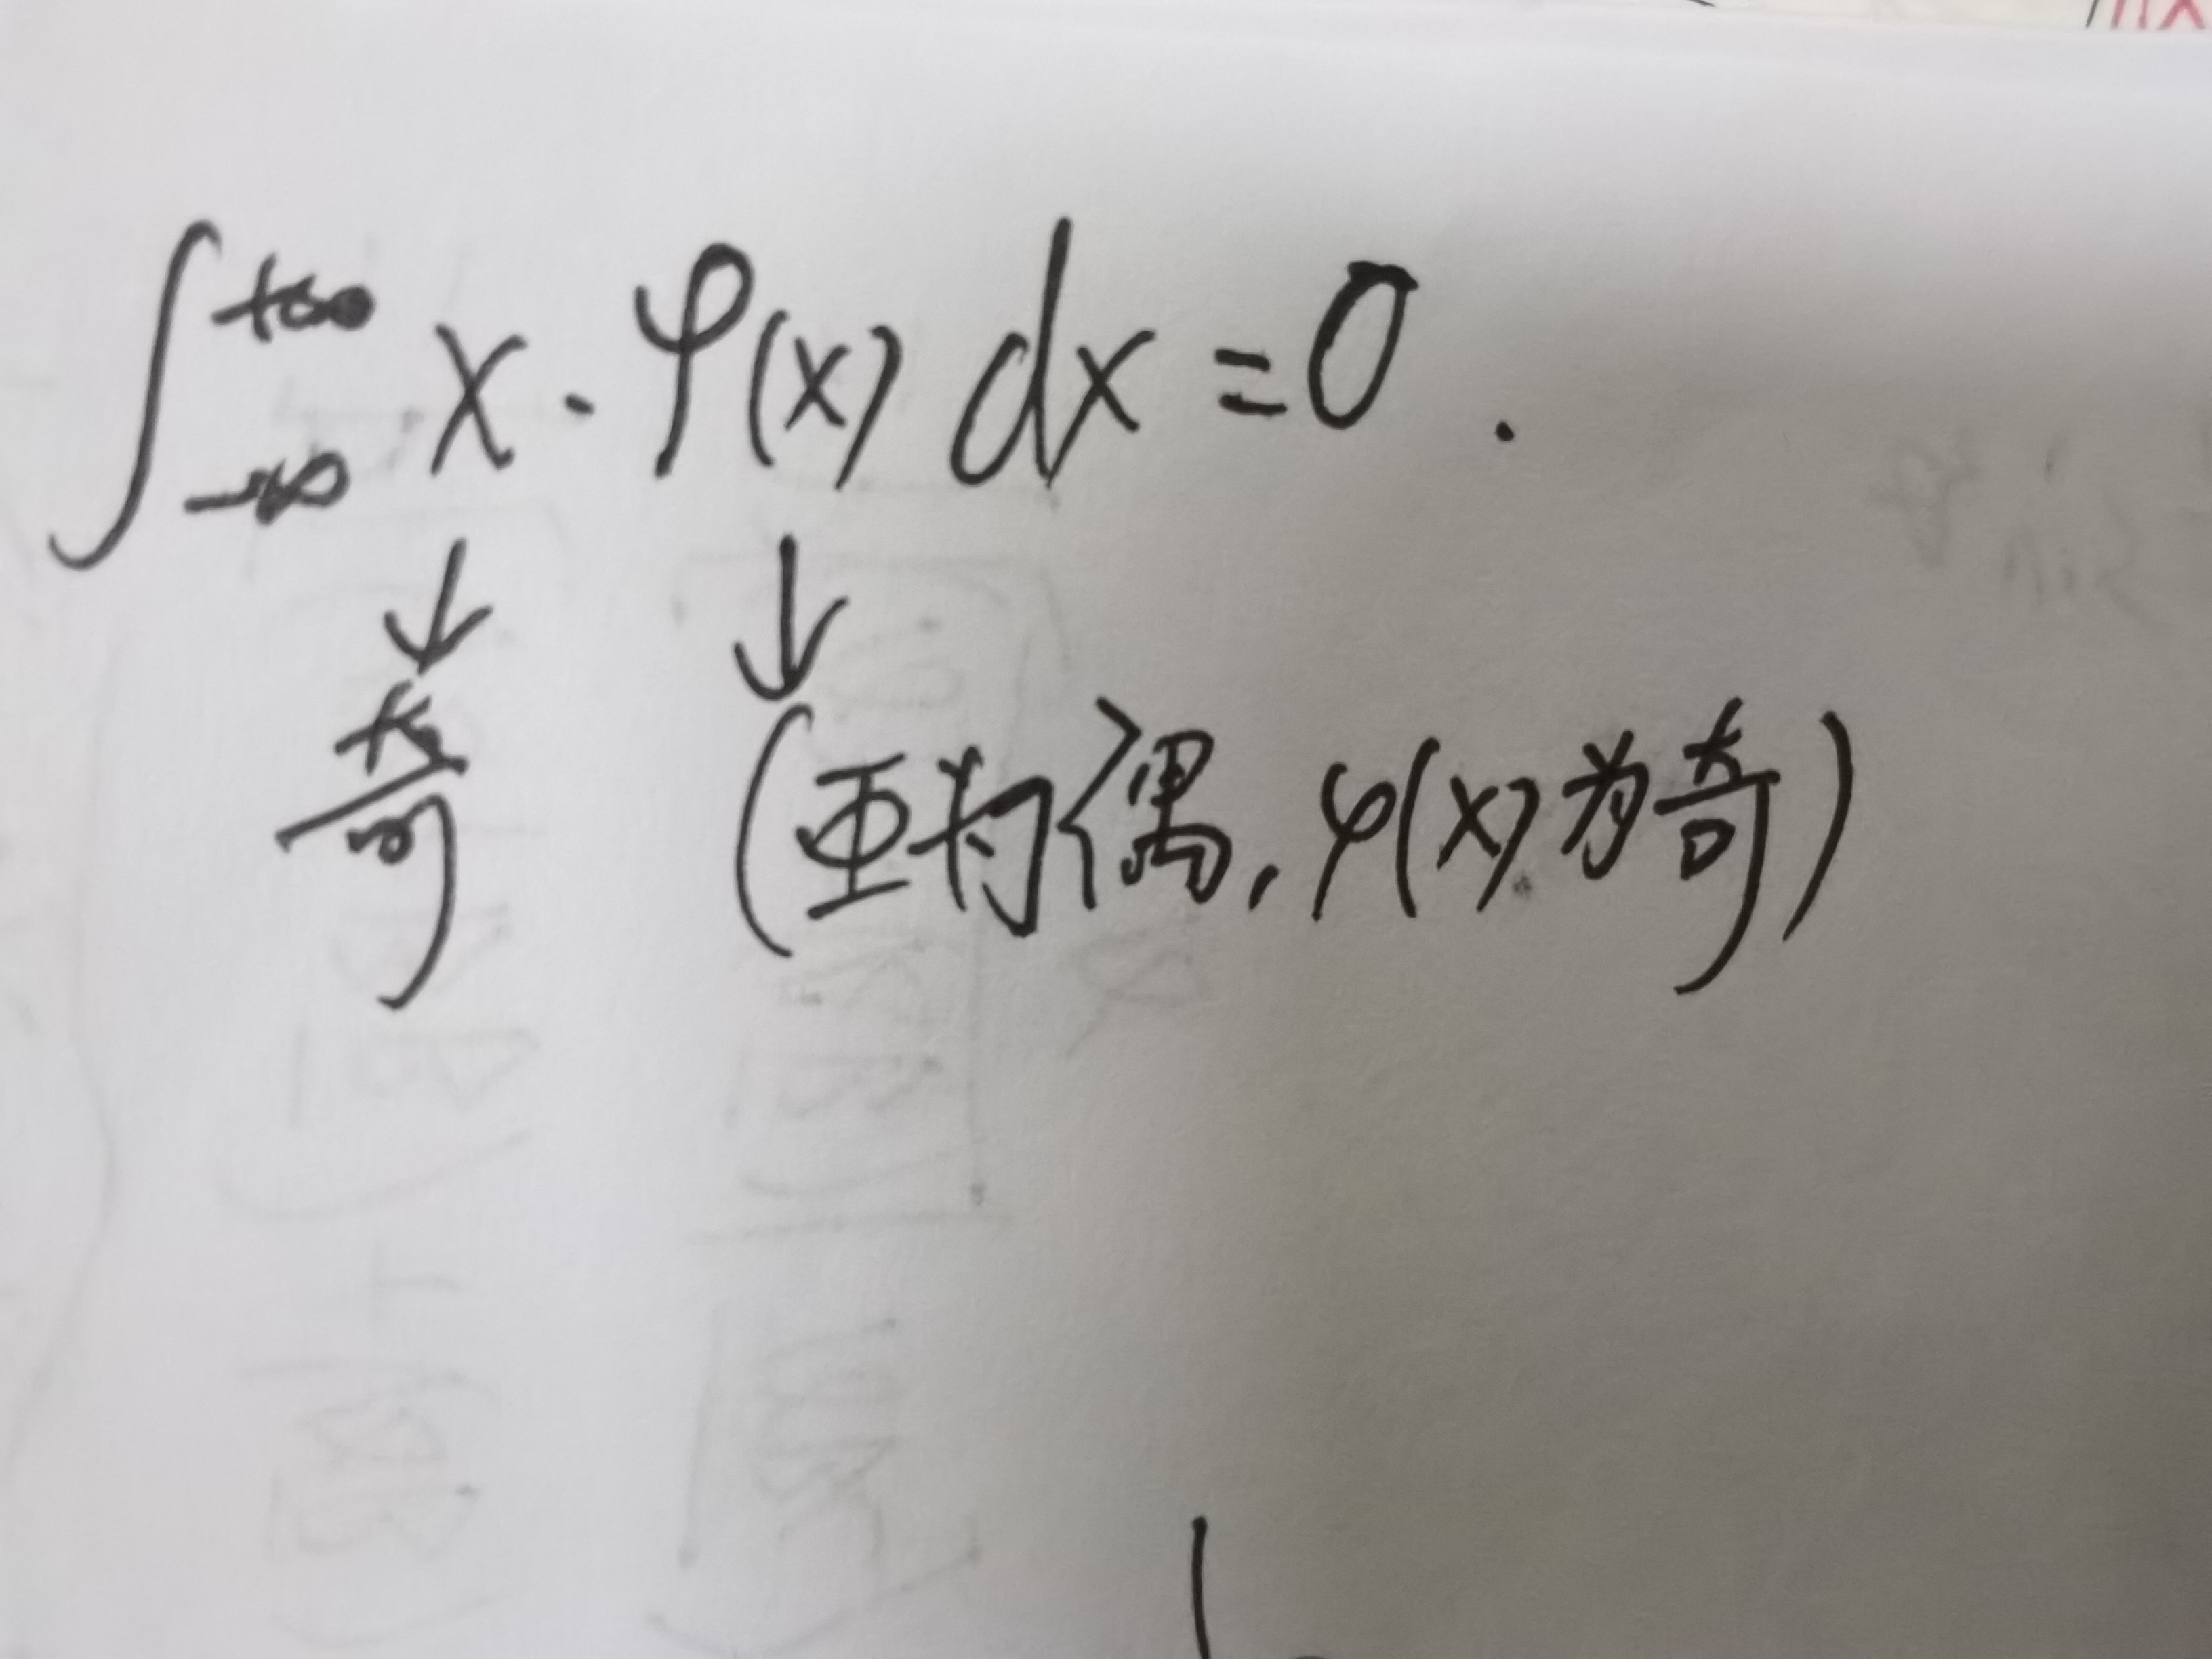 ∫_{-∞}^{+∞} x · φ(x) dx = 0 .
↓ ↓
奇 (亚均偶, φ(x)为奇)